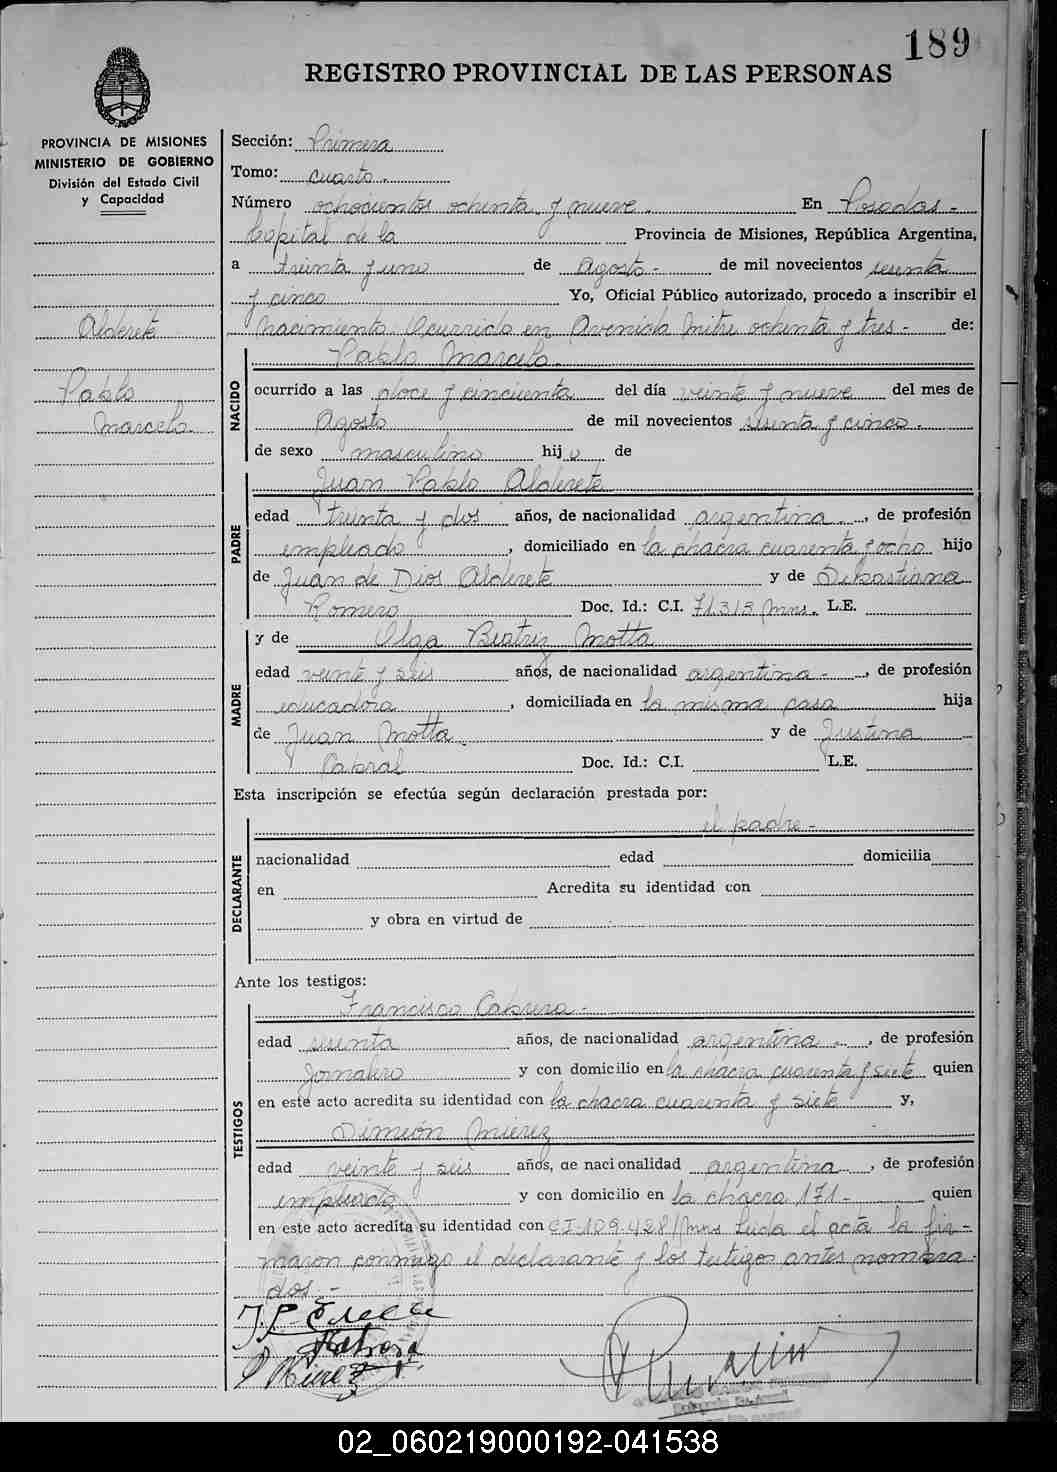 189
REGISTRO PROVINCIAL DE LAS PERSONAS
PROVINCIA DE MISIONES
MINISTERIO DE GOBIERNO
División del Estado Civil
y Capacidad
Alderete
Pablo
Marcelo
Sección: Primera
Tomo: cuarto.
Número ochocientos ochenta y nueve. En Posadas-
Capital de la Provincia de Misiones, República Argentina,
a treinta y uno de Agosto- de mil novecientos sesenta
y cinco Yo, Oficial Público autorizado, procedo a inscribir el
Nacimiento Ocurrido en Avenida Mitre ochenta y tres- de:
Pablo Marcelo.
NACIDO
ocurrido a las doce y cincuenta del día veinte y nueve del mes de
Agosto de mil novecientos sesenta y cinco.
de sexo masculino hijo de
Juan Pablo Alderete
PADRE
edad treinta y dos años, de nacionalidad argentina, de profesión
empleado, domiciliado en la chacra cuarenta y ocho hijo
de Juan de Dios Alderete y de Sebastiana
Romero Doc. Id.: C.I. 71.313 Mns. L.E.
y de Olga Beatriz Motta
MADRE
edad veinte y seis años, de nacionalidad argentina-, de profesión
educadora, domiciliada en la misma casa hija
de Juan Motta. y de Justina
Cabral Doc. Id.: C.I. L.E.
Esta inscripción se efectúa según declaración prestada por:
el padre-
DECLARANTE
nacionalidad edad domicilia
en Acredita su identidad con
y obra en virtud de
Ante los testigos:
Francisco Cabrera-
TESTIGOS
edad sesenta años, de nacionalidad argentina-, de profesión
Jornalero y con domicilio en la chacra cuarenta y siete quien
en este acto acredita su identidad con la chacra cuarenta y siete y,
Simeón Mierez
edad veinte y seis años, de nacionalidad argentina, de profesión
empleado y con domicilio en la chacra 171- quien
en este acto acredita su identidad con CI-109.428/Mns Leida el acta la fir-
maron conmigo el declarante y los testigos antes nombra-
dos.-
02_060219000192-041538